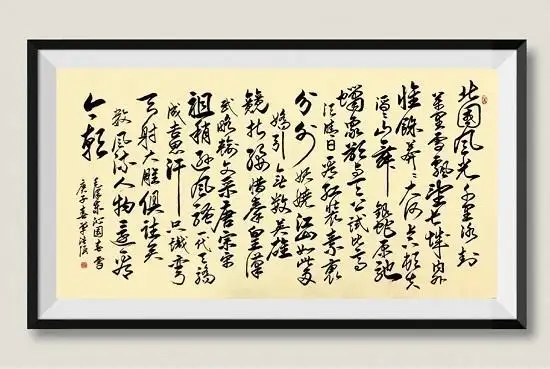 北國風光千里冰封
萬里雪飄望長城內外
惟餘莽々大河上下頓失
滔々山舞銀蛇原馳
蠟象欲與天公試比高
須晴日看紅裝素裹
分外妖嬈江山如此多
嬌引無數英雄
競折腰惜秦皇漢
武略輸文采唐宗宋
祖稍遜風騷一代天驕
成吉思汗只識彎
弓射大雕俱往矣
數風流人物還看
今朝
毛澤東沁園春雪
庚子春